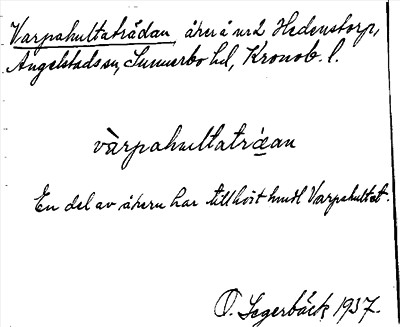 Varpahultatrådan, åker å nr 2 Hedenstorp,
Angelstads sn, Sunnerbo hd, Kronob. l.
vàrpahultatråan
En del av åkern har tillhört hmdt Varpahultet.
O. Segerbäck 1937.